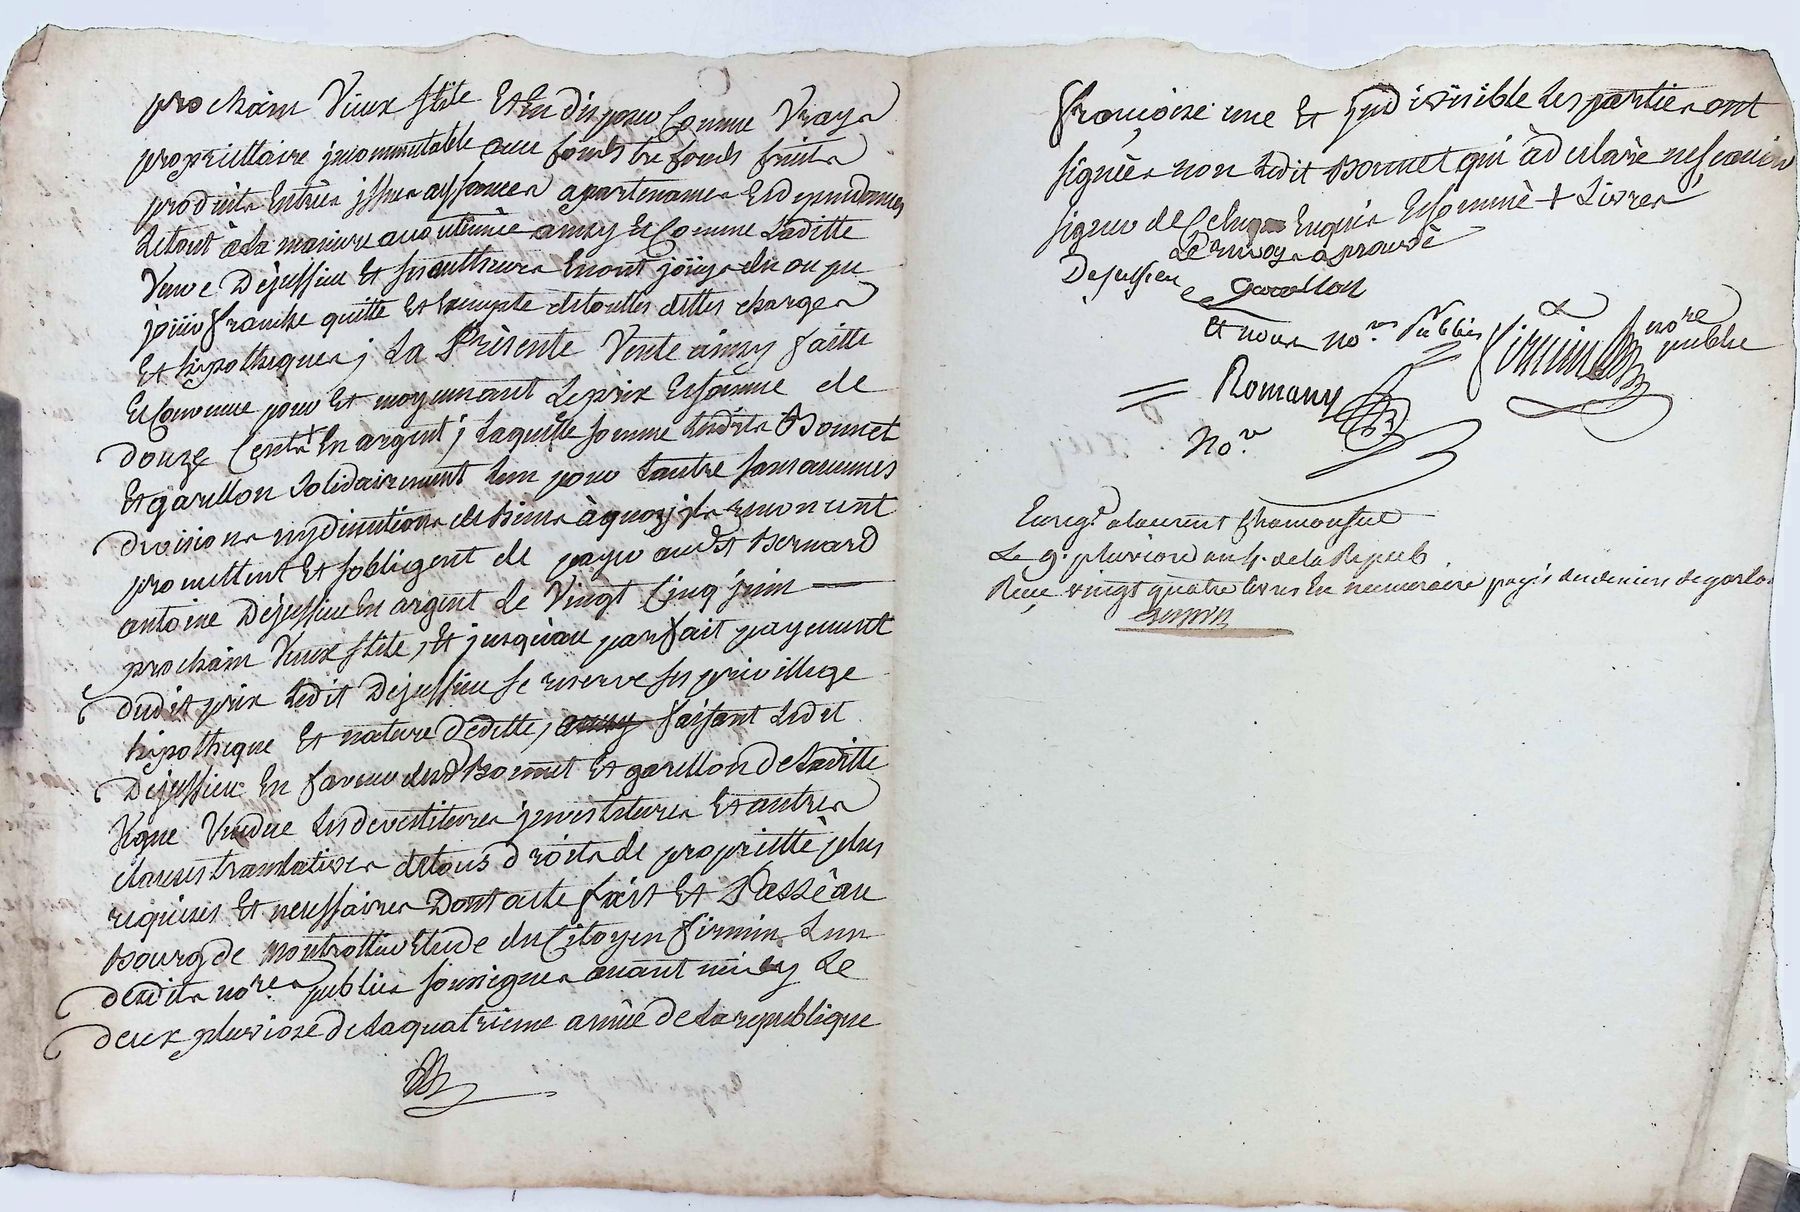 prochain Vieux stile Et En disposer Comme Vrays
propriettaire jncommutable avec fonds trefonds fruits
produits Entrées jssues aysances apartenances Et dependances
Le tout à la maniere acoutumée ainsy Et Comme Laditte
Veuve Dejussieu Et ses autheurs En ont joüys deu ou pu
joüir franche quitte Et Exempte de touttes dettes charges
Et hipotheques ; La Présente Vente ainsy faitte
Et Convenue pour Et moyennant Le prix Et somme de
douze Cents + En argent ; Laquelle somme Lesdits Bonnet
Et garellon solidairement Lun pour Lautre sans aucunes
divisions ny dicutions de biens à quoy jls renoncent
promettent Et sobligent de payer audt Bernard
antoine Dejussieu En argent Le Vingt Cinq juin
prochain Vieux stile, Et jusquau parfait payement
dudit prix Ledit Dejussieu se reserve ses privillege
hipotheque Et nature dedette, faisant Ledit
Dejussieu En faveur desd Bonnet Et garellon de Laditte
Vigne Vendue Les devestitures jnvestitures Et autres
clauses translatives de tous droits de propriétté plus
requises Et necessaires Dont acte fait Et Passé au
bourg de montrottier Etude du Citoyen firmin Lun
desdits nores publics soussignes avant midy Le
deux pluviose de La quatrieme année de La republique
françoise une Et jndivisible Les parties ont
signées non Ledit Bonnet qui à déclaré ne scavoir
signer de Ce Enquis Et sommé + Livres
Le renvoy approuvé
Dejussieu
Garellon
Et nous nores Publics
firmin nore
publie
= Romany
Nore
Enregt a Laurent Chamousset
Le 9. pluviose an 4. de la Repub.
Reçu vingt quatre livres En numeraire payés des deniers de garello